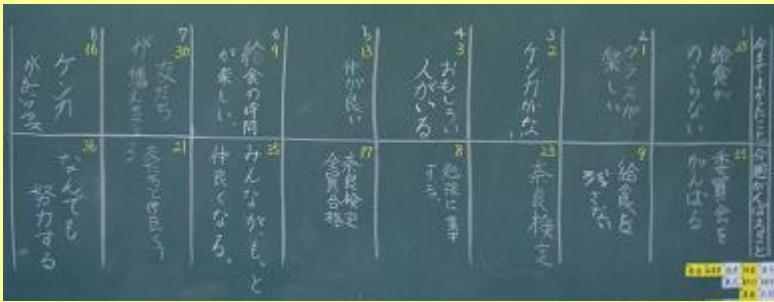 今までよかったこと
今週がんばること
1
25
給食が
のこらない
委員会を
がんばる
2
1
クラスが
楽しい
9
給食を
残さない
3
2
ケンカがない
23
奈良検定
4
3
おもしろい
人がいる
8
勉強に集中
する。
5
13
仲が良い
17
奈良検定
全員合格
6
9
給食の時間
が楽しい。
25
みんながも、と
仲良くなる。
7
30
友だち
21
8
16
ケンカ
36
なんでも
努力する